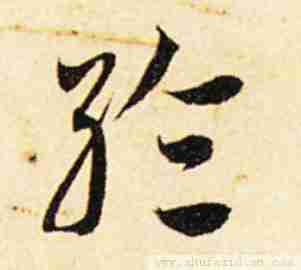 於
www.shufazidian.com